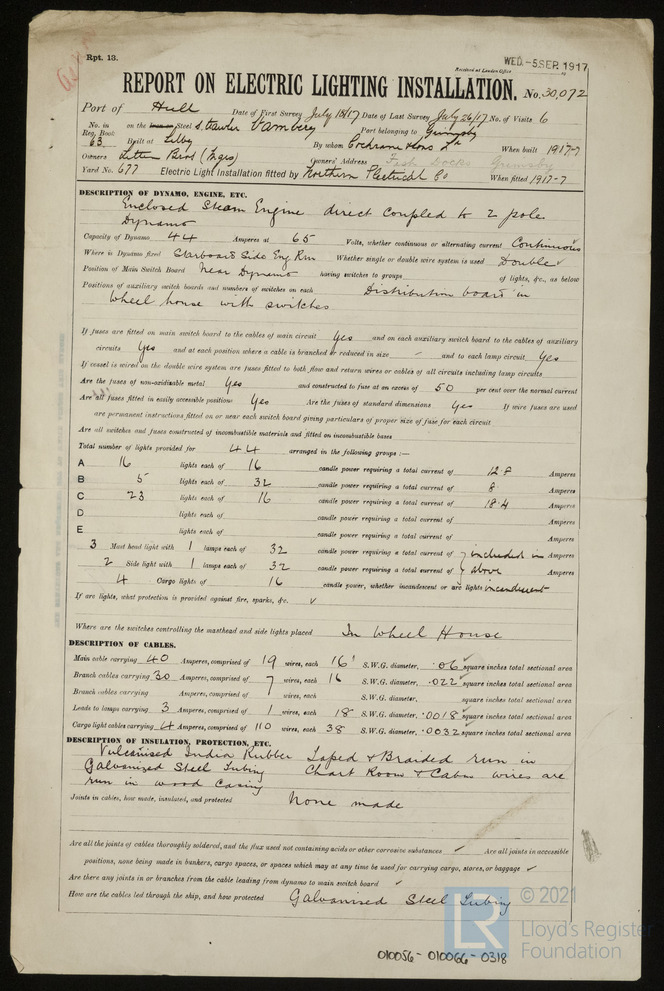 Rpt. 13.
WED. -5 SEP. 1917
Received at London Office
REPORT ON ELECTRIC LIGHTING INSTALLATION. No. 30,072
Port of Hull Date of First Survey July 18/17 Date of Last Survey July 26/17 No. of Visits 6
No. in Reg. Book 63 on the Steel S. trawler Vambery Port belonging to Grimsby
Built at Selby By whom Cochrane & Sons Ld When built 1917-7
Owners Letten Bros (Mgrs) Owners' Address Fish Docks Grimsby
Yard No. 677 Electric Light Installation fitted by Northern Electrical Co When fitted 1917-7
DESCRIPTION OF DYNAMO, ENGINE, ETC.
Enclosed Steam Engine direct coupled to 2 pole
Dynamo
Capacity of Dynamo 44 Amperes at 65 Volts, whether continuous or alternating current Continuous
Where is Dynamo fixed Starboard Side Eng Rm Whether single or double wire system is used Double ✓
Position of Main Switch Board Near Dynamo having switches to groups of lights, &c., as below
Positions of auxiliary switch boards and numbers of switches on each Distribution board in
Wheel house with switches
If fuses are fitted on main switch board to the cables of main circuit Yes and on each auxiliary switch board to the cables of auxiliary
circuits Yes and at each position where a cable is branched or reduced in size – and to each lamp circuit Yes
If vessel is wired on the double wire system are fuses fitted to both flow and return wires or cables of all circuits including lamp circuits
Are the fuses of non-oxidizable metal Yes and constructed to fuse at an excess of 50 per cent over the normal current
Are all fuses fitted in easily accessible positions Yes Are the fuses of standard dimensions Yes If wire fuses are used
are permanent instructions fitted on or near each switch board giving particulars of proper size of fuse for each circuit
Are all switches and fuses constructed of incombustible materials and fitted on incombustible bases
Total number of lights provided for 44 arranged in the following groups :—
A 16 lights each of 16 candle power requiring a total current of 12.8 Amperes
B 5 lights each of 32 candle power requiring a total current of 8 Amperes
C 23 lights each of 16 candle power requiring a total current of 18.4 Amperes
D lights each of candle power requiring a total current of Amperes
E lights each of candle power requiring a total current of Amperes
3 Mast head light with 1 lamps each of 32 candle power requiring a total current of } included in Amperes
2 Side light with 1 lamps each of 32 candle power requiring a total current of } above Amperes
4 Cargo lights of 16 candle power, whether incandescent or arc lights incandescent
If arc lights, what protection is provided against fire, sparks, &c. ✓
Where are the switches controlling the masthead and side lights placed In Wheel House
DESCRIPTION OF CABLES.
Main cable carrying 40 Amperes, comprised of 19 wires, each 16 S.W.G. diameter, .06 square inches total sectional area
Branch cables carrying 30 Amperes, comprised of 7 wires, each 16 S.W.G. diameter, .022 square inches total sectional area
Branch cables carrying Amperes, comprised of wires, each S.W.G. diameter, square inches total sectional area
Leads to lamps carrying 3 Amperes, comprised of 1 wires, each 18 S.W.G. diameter, .0018 square inches total sectional area
Cargo light cables carrying 4 Amperes, comprised of 110 wires, each 38 S.W.G. diameter, .0032 square inches total sectional area
DESCRIPTION OF INSULATION, PROTECTION, ETC.
Vulcanised India Rubber Taped & Braided run in
Galvanized Steel Tubing Chart Room & Cabin wires are
run in wood casing
Joints in cables, how made, insulated, and protected None made
Are all the joints of cables thoroughly soldered, and the flux used not containing acids or other corrosive substances ✓ Are all joints in accessible
positions, none being made in bunkers, cargo spaces, or spaces which may at any time be used for carrying cargo, stores, or baggage ✓
Are there any joints in or branches from the cable leading from dynamo to main switch board ✓
How are the cables led through the ship, and how protected Galvanised Steel Tubing
LR
© 2021
Lloyd's Register
Foundation
010056-010066-0318